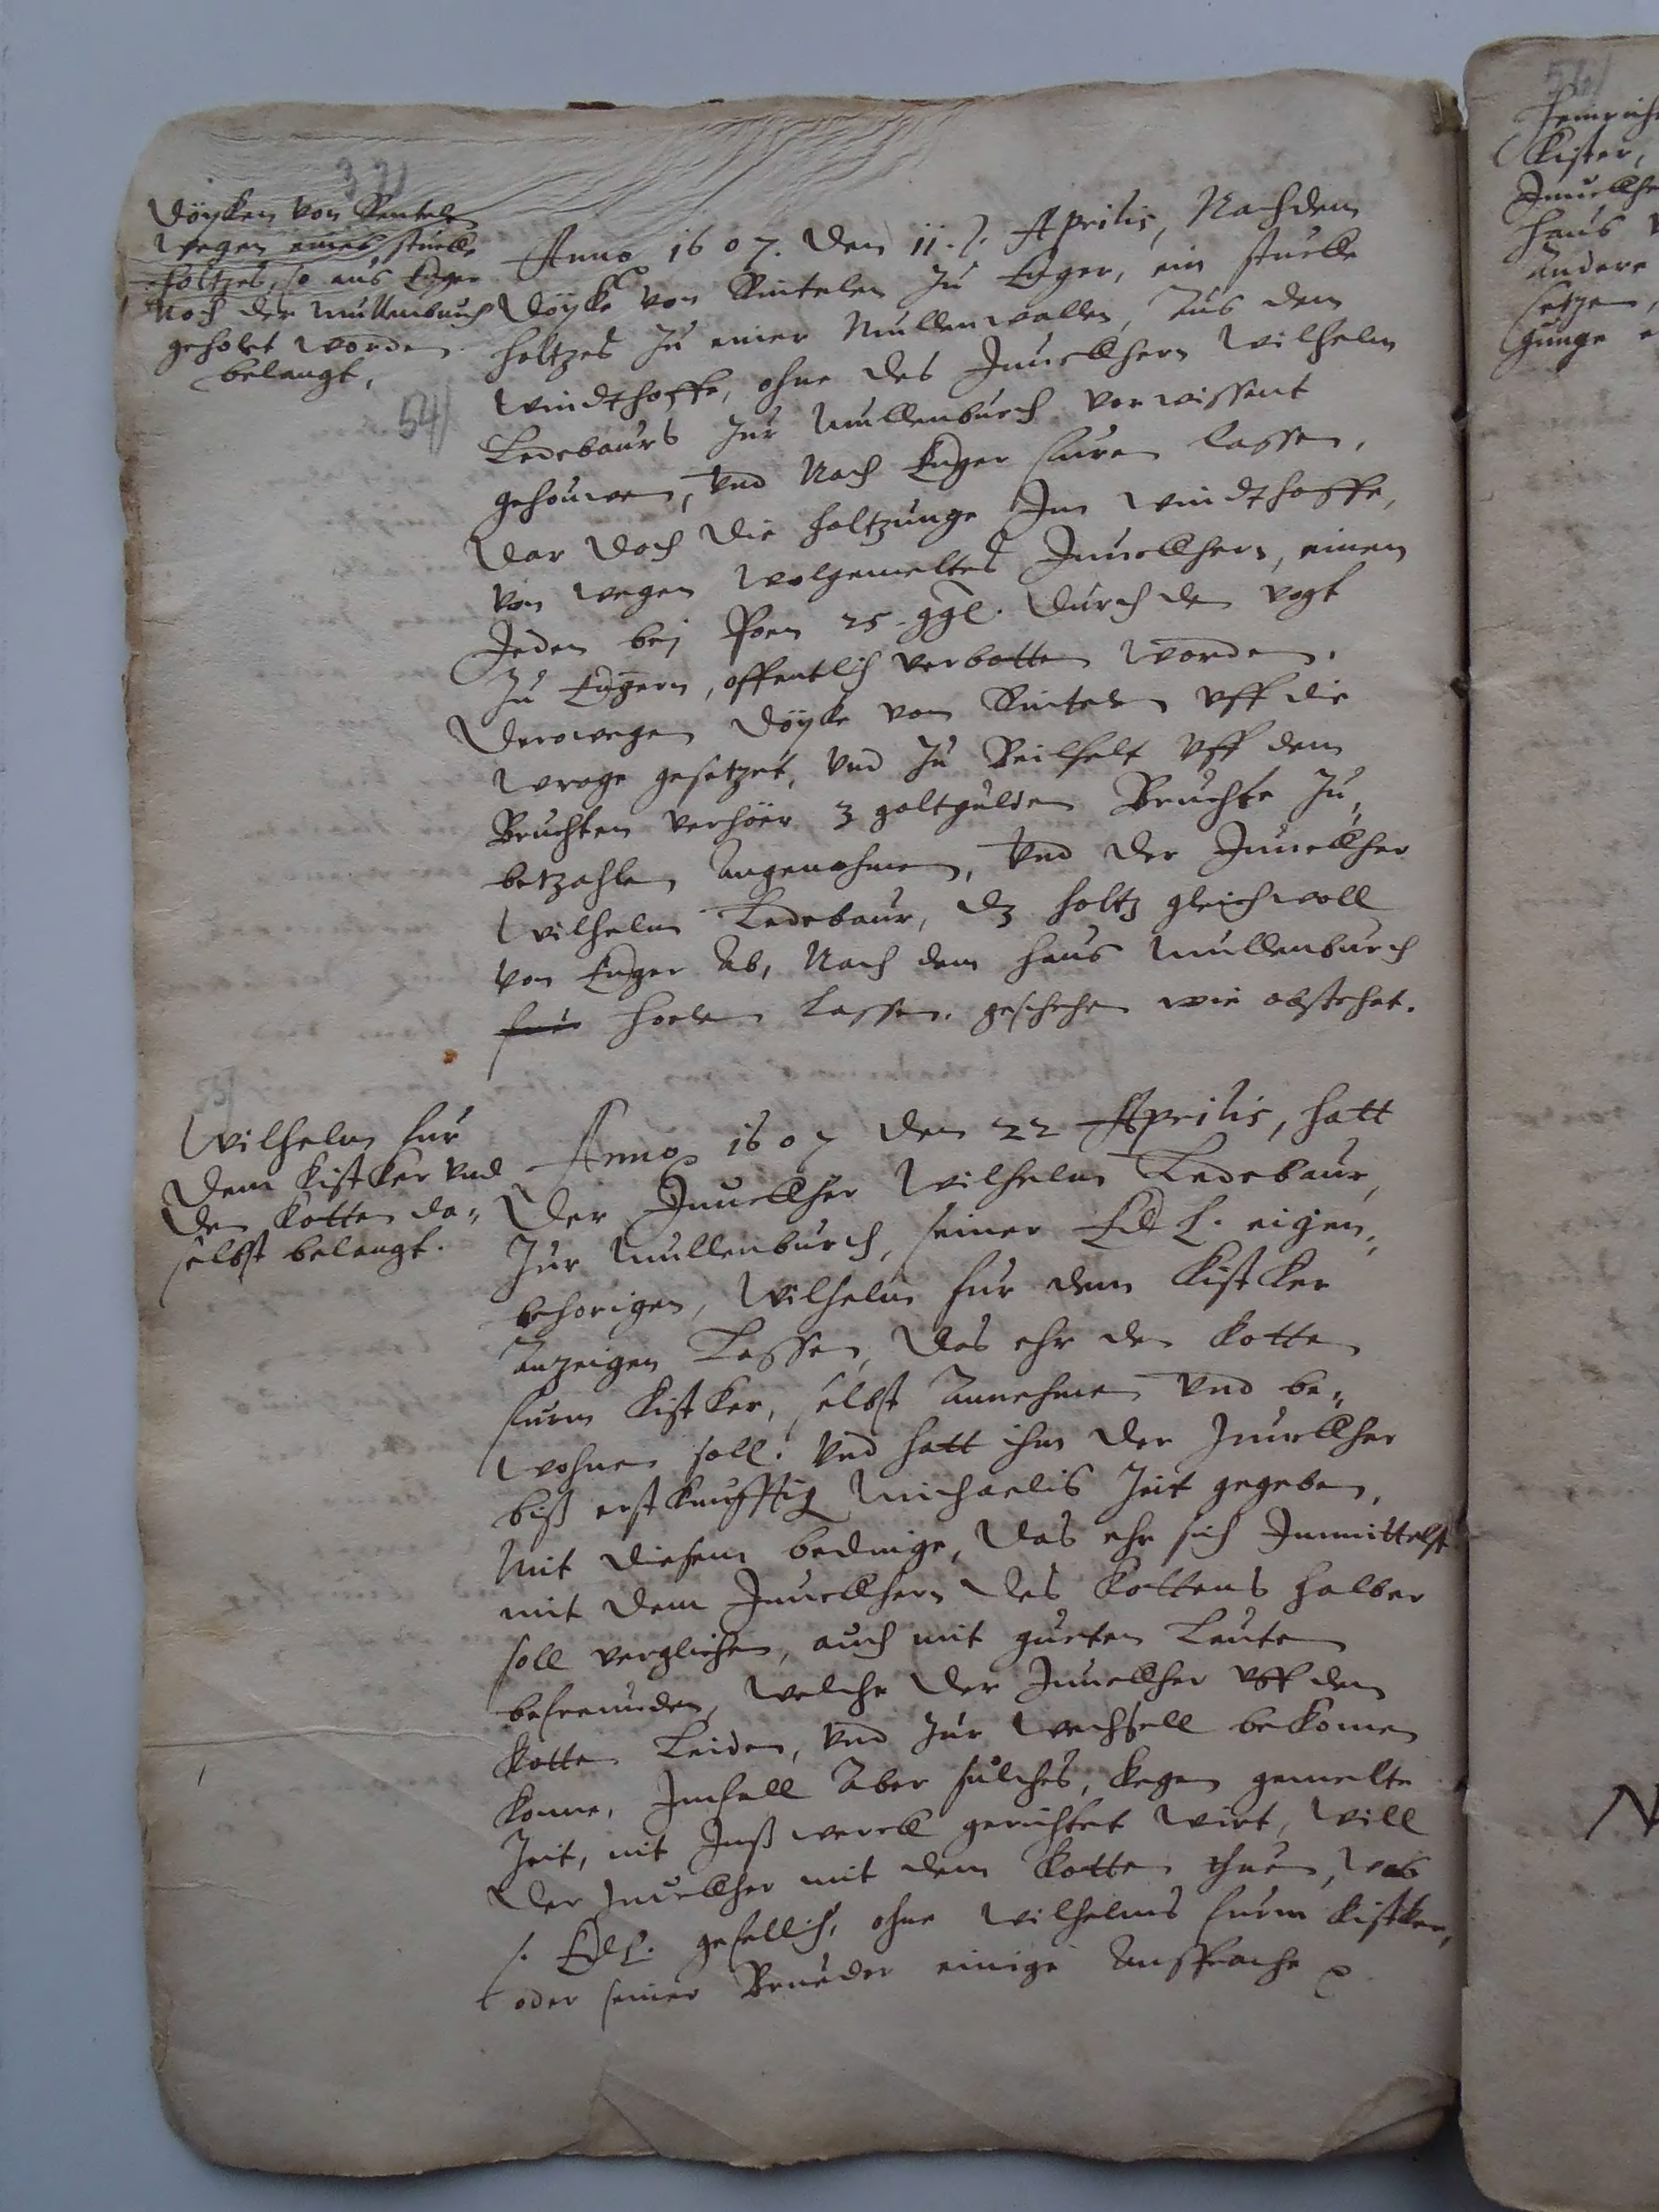 37/
Döyken von Rentelen
wegen eines stuecke
holtzes, so aus Enger
Nach der Mullenburch
geholet worden
belangt,
54/
Anno 1607. den 11. Aprilis, Nachdem
Döyke von Rintelen zu Enger, ein stucke
holtzes zu einer Mullenwallen, Aus dem
Windthoffe, ohne des Junckhern Wilhelm
Ledebaurs zur Mullenburch vorwissent
gehouwen, Und Nach Enger furen lassen,
Dar doch die holtzunge Im Windthoffe,
von wegen wolgemeltes Junckhern, einem
Jeden bej Poen 25. ggl. durch den vogt
zu Engern, offentlich verbotten worden.
Derowegen Döyke von Rintelen uff die
wroge gesetzet, und zu Beilfelt uff dem
Bruchten verhöer 3 goltgulden Bruchte zu,
betzahlen Angenohmen, Und der Junckher
Wilhelm Ledebaur, dz holtz gleichwoll
von Enger Ab, Nach dem haus Mullenburch
holen Lassen. geschehen wie obstehet.
Wilhelm fur
dem Kistker und
den Kotten da„
selbst belangt.
Anno 1607 den 22 Aprilis, hatt
Der Junckher Wilhelm Ledebaur,
Zur Mullenburch, seiner Edl. L. eigen„
behorigen, Wilhelm fur dem Kistker
Anzeigen Lassen, Das ehr den Kotten
furm Kistker, selbst Annehmen Und be„
wohnen soll. Und hatt ihm der Junckher
biß erstkunfftig Michaelis Zeit gegeben,
Mit diesem bedinge, Das ehr sich Inmittelst
mit dem Junckhern des Kottens halber
soll verglichen, auch mit gueten Leuten
befreunden, Welche der Junckher uff dem
Kotten Leiden, Und zur Wechsell bekomen
konne, Imfall Aber sulches, kegen gemelte
Zeit, nit Inß werck gerichtet wirt, Will
Der Junckher mit dem Kotten thuen, was
s. Edl. L. gefellich, ohne Wilhelms furm Kistker,
oder seiner Brueder einige Ansprache
54/
Kister,
haus
Andere
setzen,